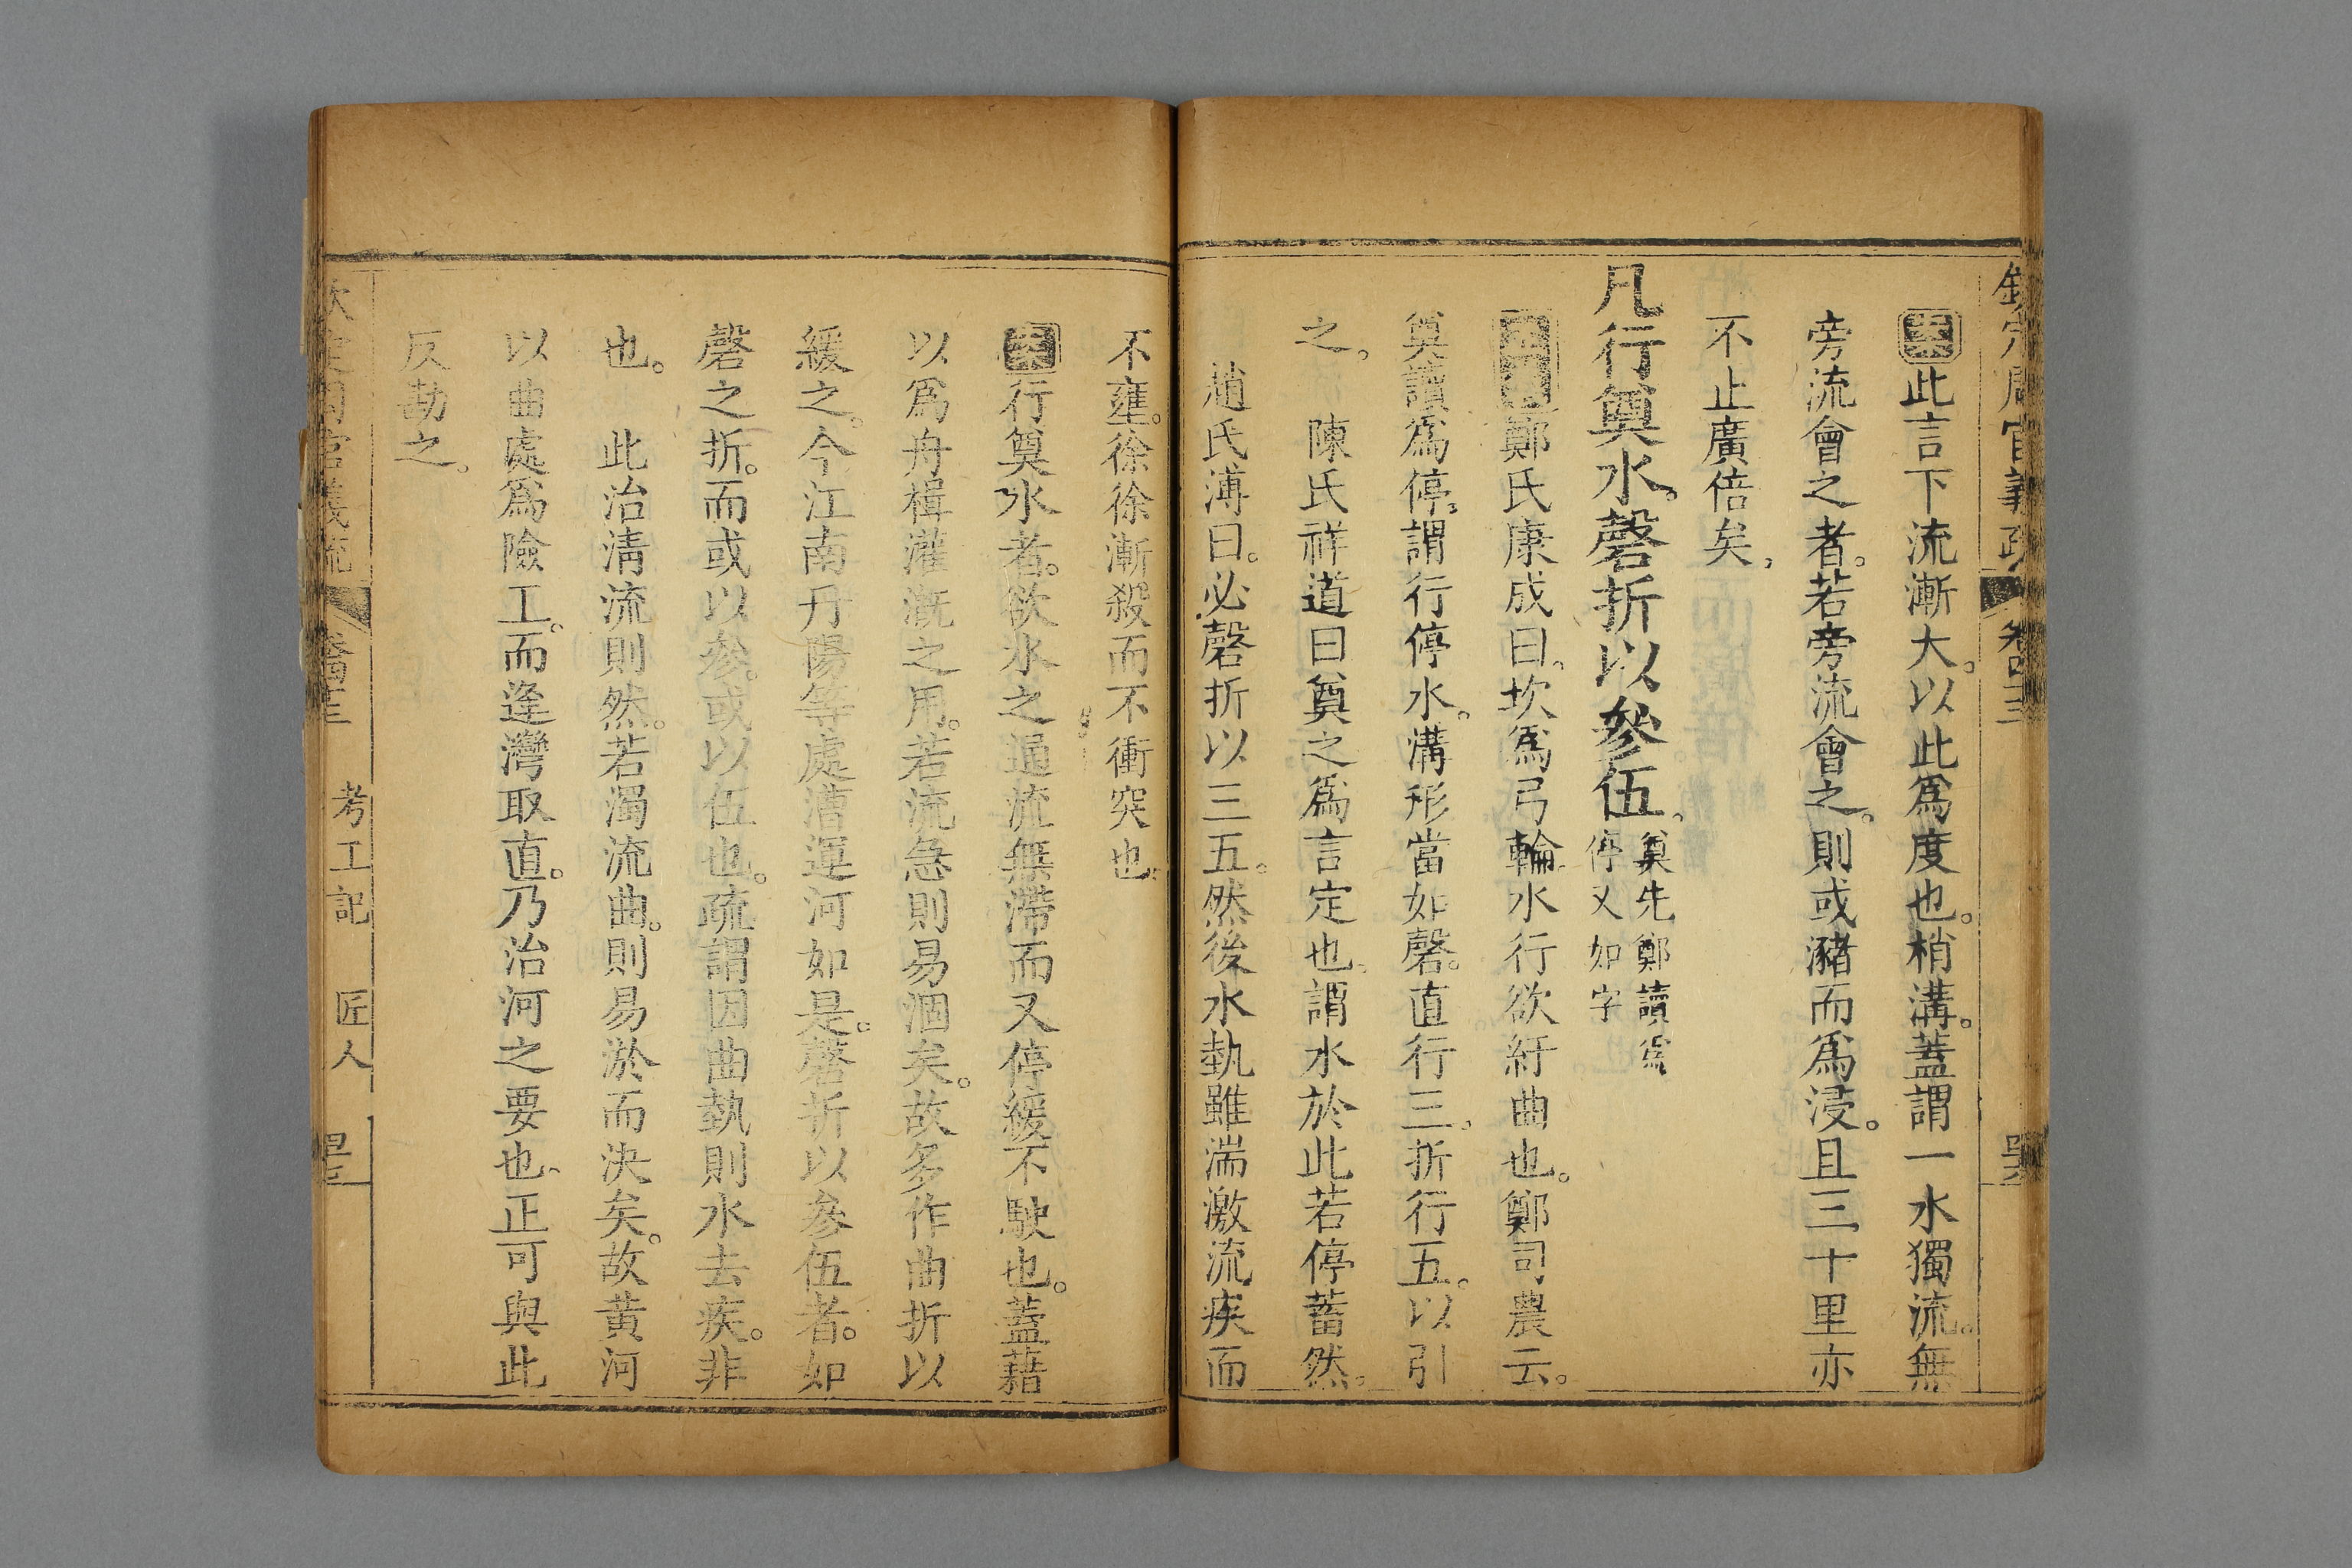 欽定周官義疏 卷四三
案此言下流漸大。以此爲度也。梢溝。蓋謂一水獨流。無
旁流會之者。若旁流會之。則或瀦而爲浸。且三十里亦
不止廣倍矣。
凡行奠水。磬折以參伍。
奠先鄭讀爲
停又如字
鄭氏康成曰。坎爲弓輪。水行欲紆曲也。鄭司農云。
奠讀爲停。謂行停水。溝形當如磬。直行三。折行五。以引
之。 陳氏祥道曰奠之爲言定也。謂水於此若停蓄然。
趙氏溥曰。必磬折以三五。然後水埶雖湍激流疾而
不壅。徐徐漸殺而不衝突也。
案行奠水者。欲水之通流無滯而又停緩不駛也。蓋藉
以爲舟楫灌漑之用。若流急則易涸矣。故多作曲折以
緩之。今江南丹陽等處漕運河如是。磬折以參伍者。如
磬之折。而或以參。或以伍也。疏謂因曲埶則水去疾。非
也。 此治淸流則然。若濁流曲。則易淤而決矣。故黄河
以曲處爲險工。而逢灣取直。乃治河之要也。正可與此
反勘之。
欽定周官義疏 考工記 匠人